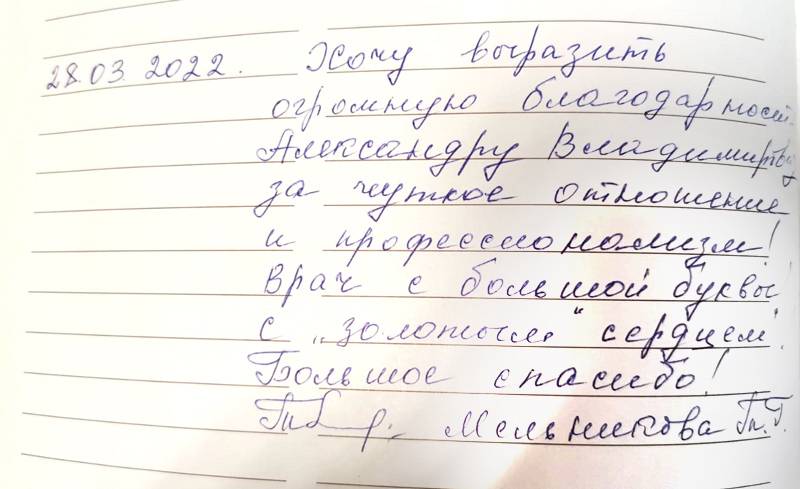 28.03.2022. Хочу выразить
огромную благодарность
Александру
за чуткое отношение
и профессионализм!
Врач с большой буквы
с „золотым“ сердцем!
Большое спасибо!
Мельникова